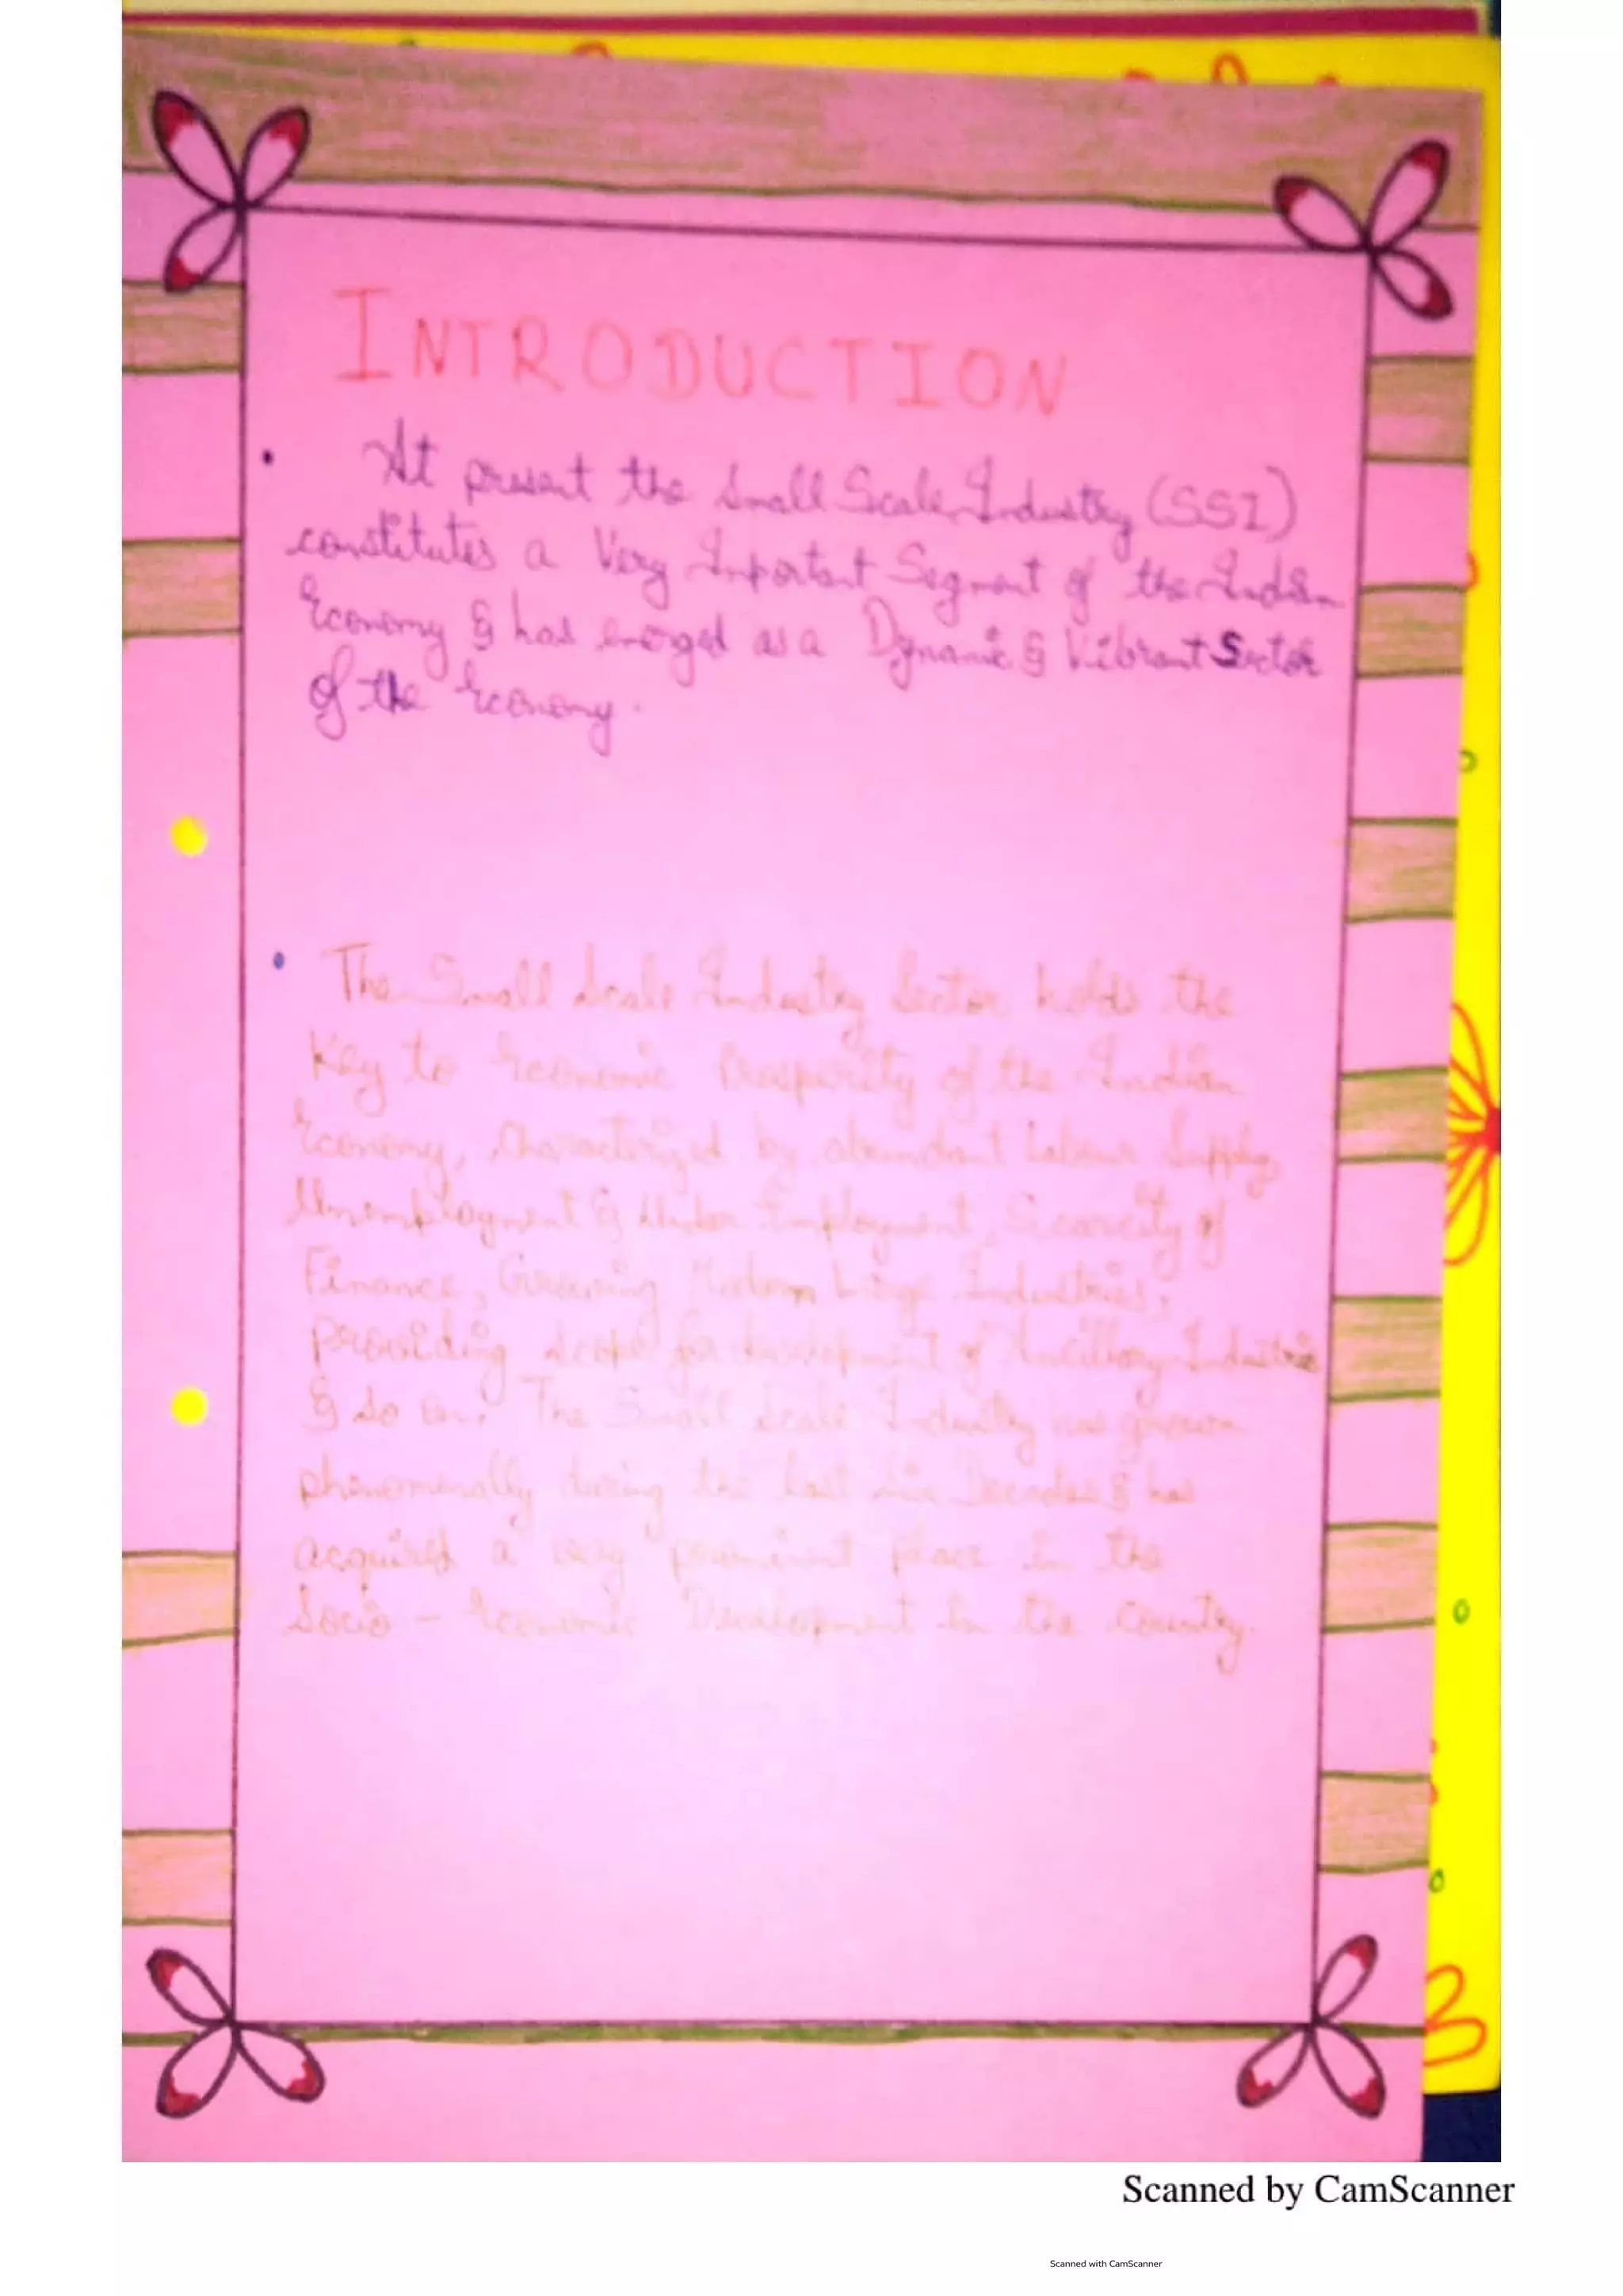 INTRODUCTION
• At present the Small Scale Industry (SSI)
constitutes a Very Important Segment of the Indian
Economy & has emerged as a Dynamic & Vibrant Sector
of the Economy.
• The Small Scale Industry Sector holds the
Key to Economic Prosperity of the Indian
Economy, Characterized by abundant Labour Supply,
Unemployment & Under Employment, Scarcity of
Finance, Growing Modern Large Industries,
providing scope for development of Ancillary Industrie
& so on. The Small Scale Industry has grown
phenomenally during the last Six Decades & has
acquired a very prominent place in the
Socio - Economic Development in the country.
Scanned by CamScanner
Scanned with CamScanner